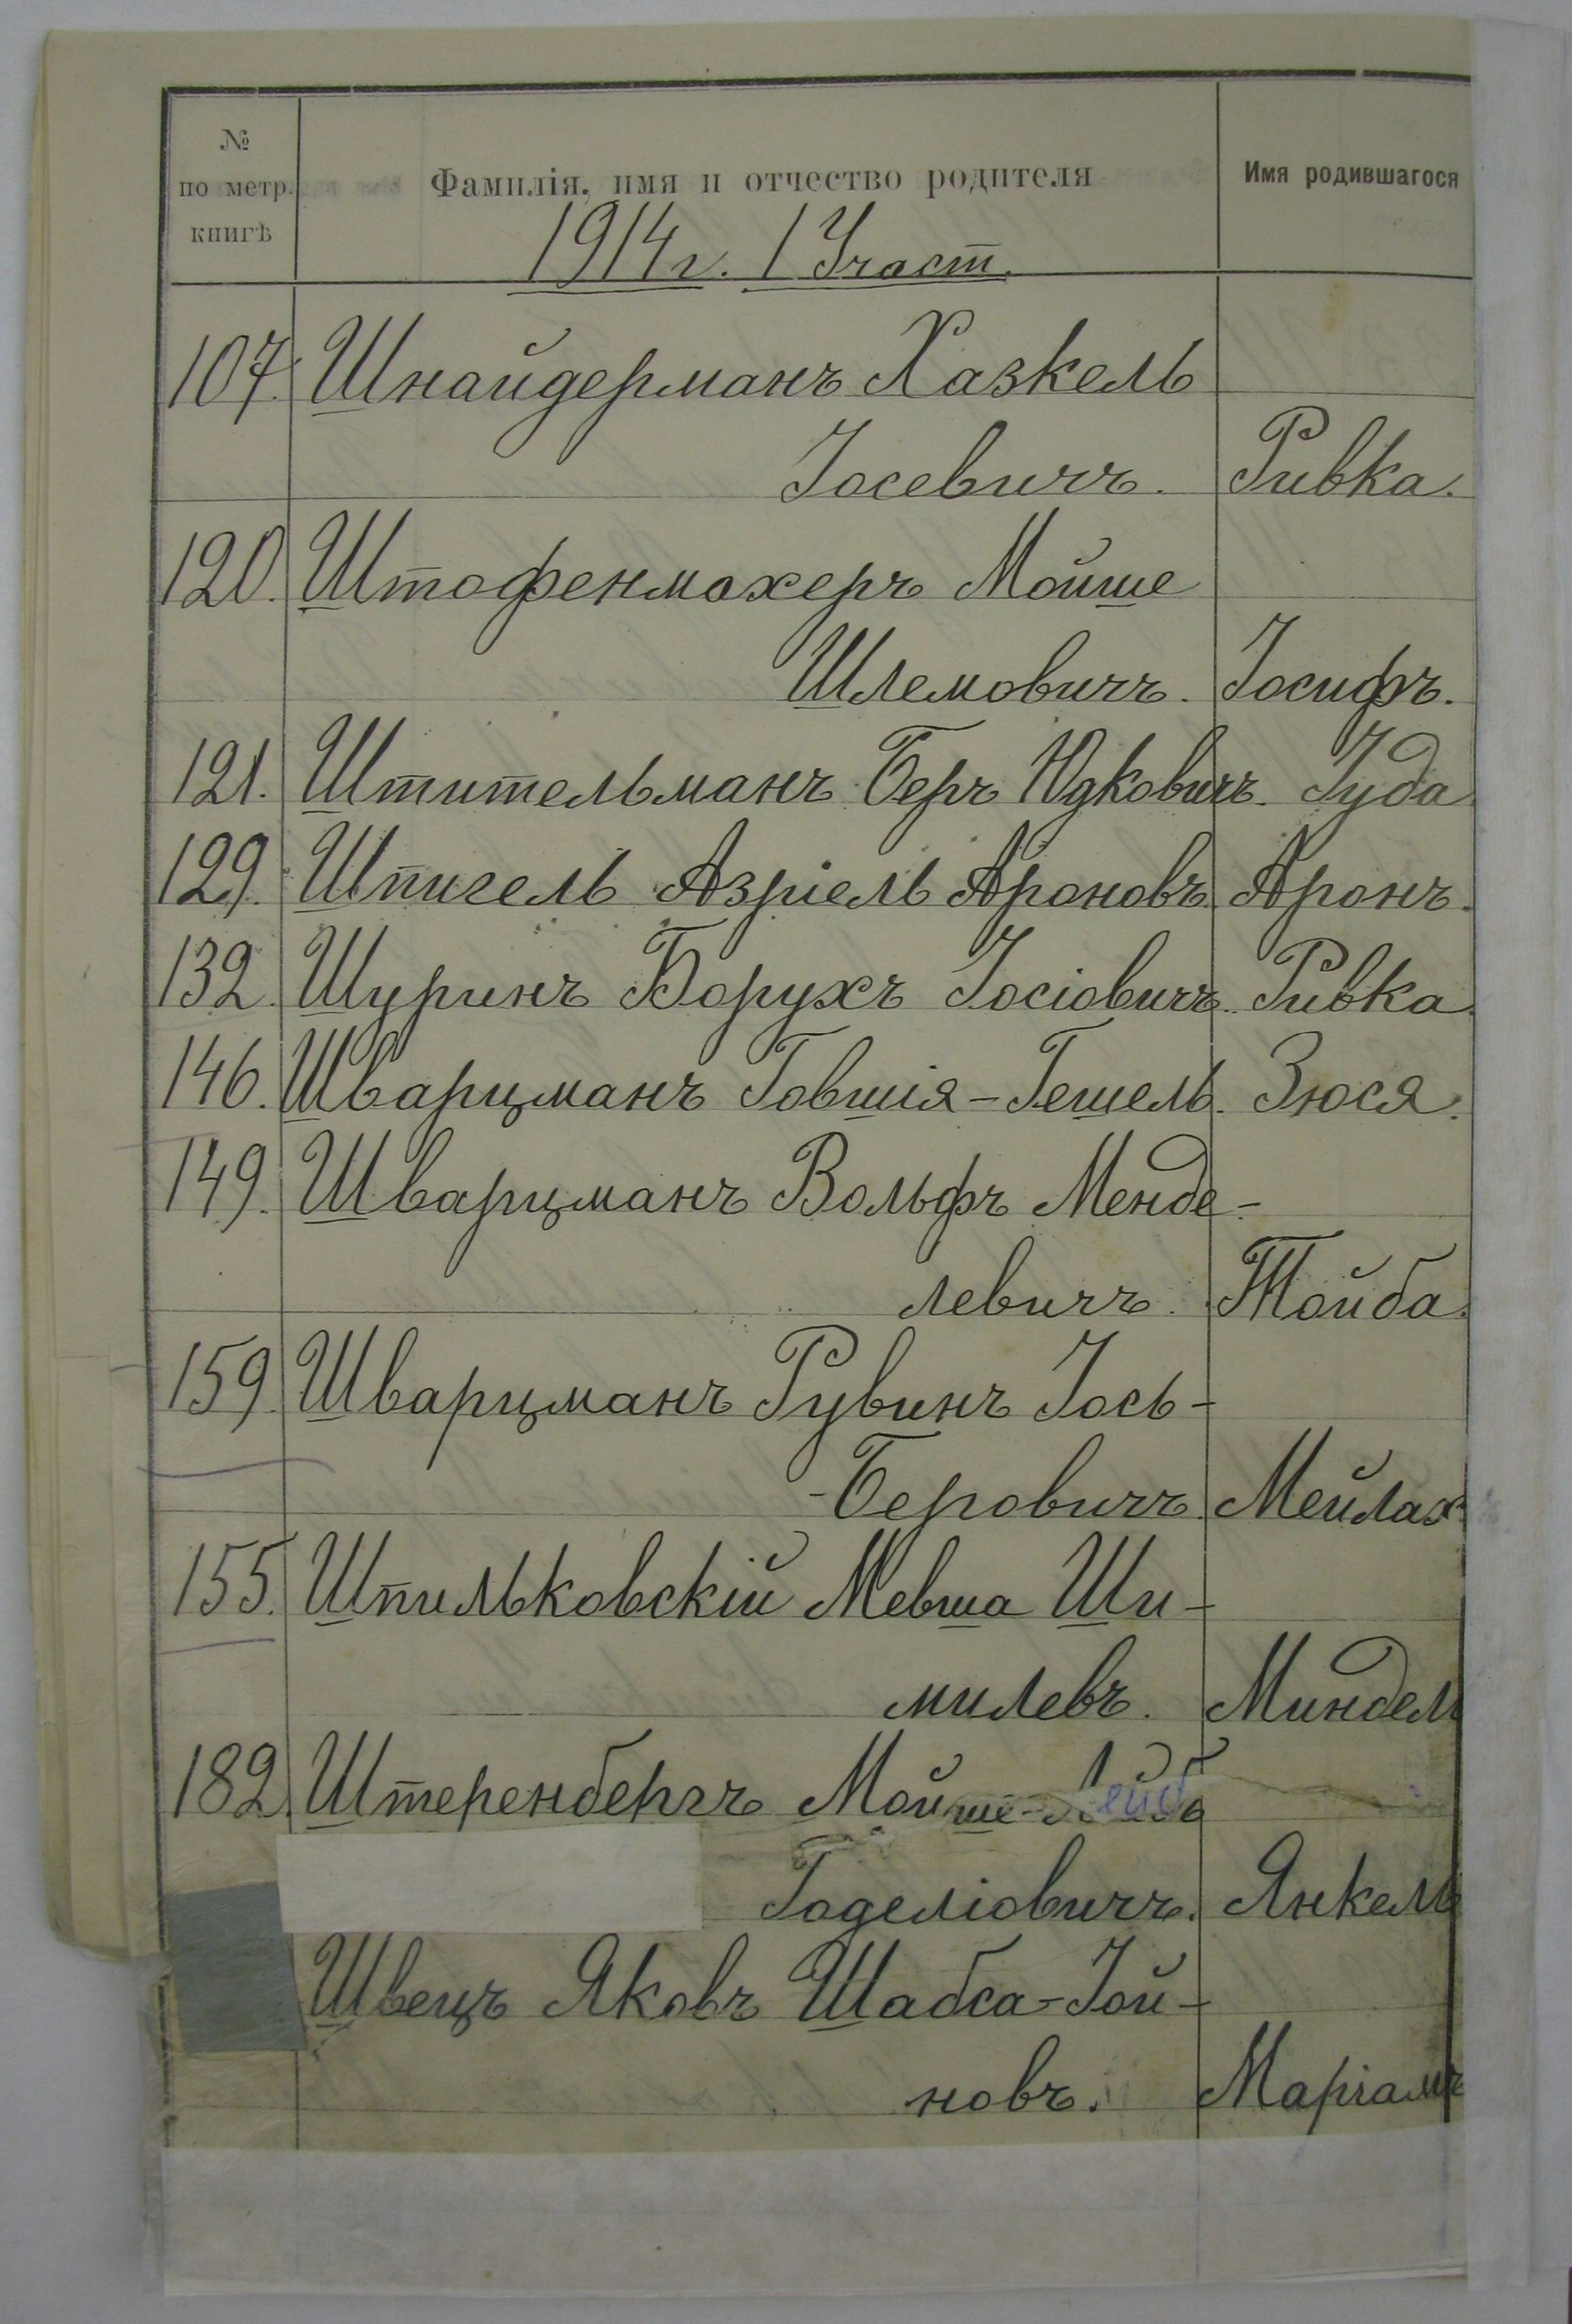 № по метр. книгѣ
Фамилія, имя и отчество родителя
Имя родившагося
1914 г. 1 Участ.
107. Шнайдерманъ Хазкель
Іосевичъ. Ривка.
120. Штофенмахеръ Мойше
Шлемовичъ. Іосифъ.
121. Штительманъ Беръ Юдковичъ. Іуда
129. Шпигель Азріель Ароновъ. Аронъ.
132. Шуринъ Борухъ Іосіовичъ. Ривка.
146. Шварцманъ Говшія-Гешель. Зюся.
149. Шварцманъ Вольфъ Менде-
левичъ. Тойба.
159 Шварцманъ Рувинъ Іось-
-Беровичъ. Мейлах
155. Шпильковскій Мевша Ши-
милевъ. Миндель
182. Штеренбергъ Мойше-Лейбъ
Годеліовичъ. Янкель
Швецъ Яковъ Шабса-Іой-
новъ. Маріамъ